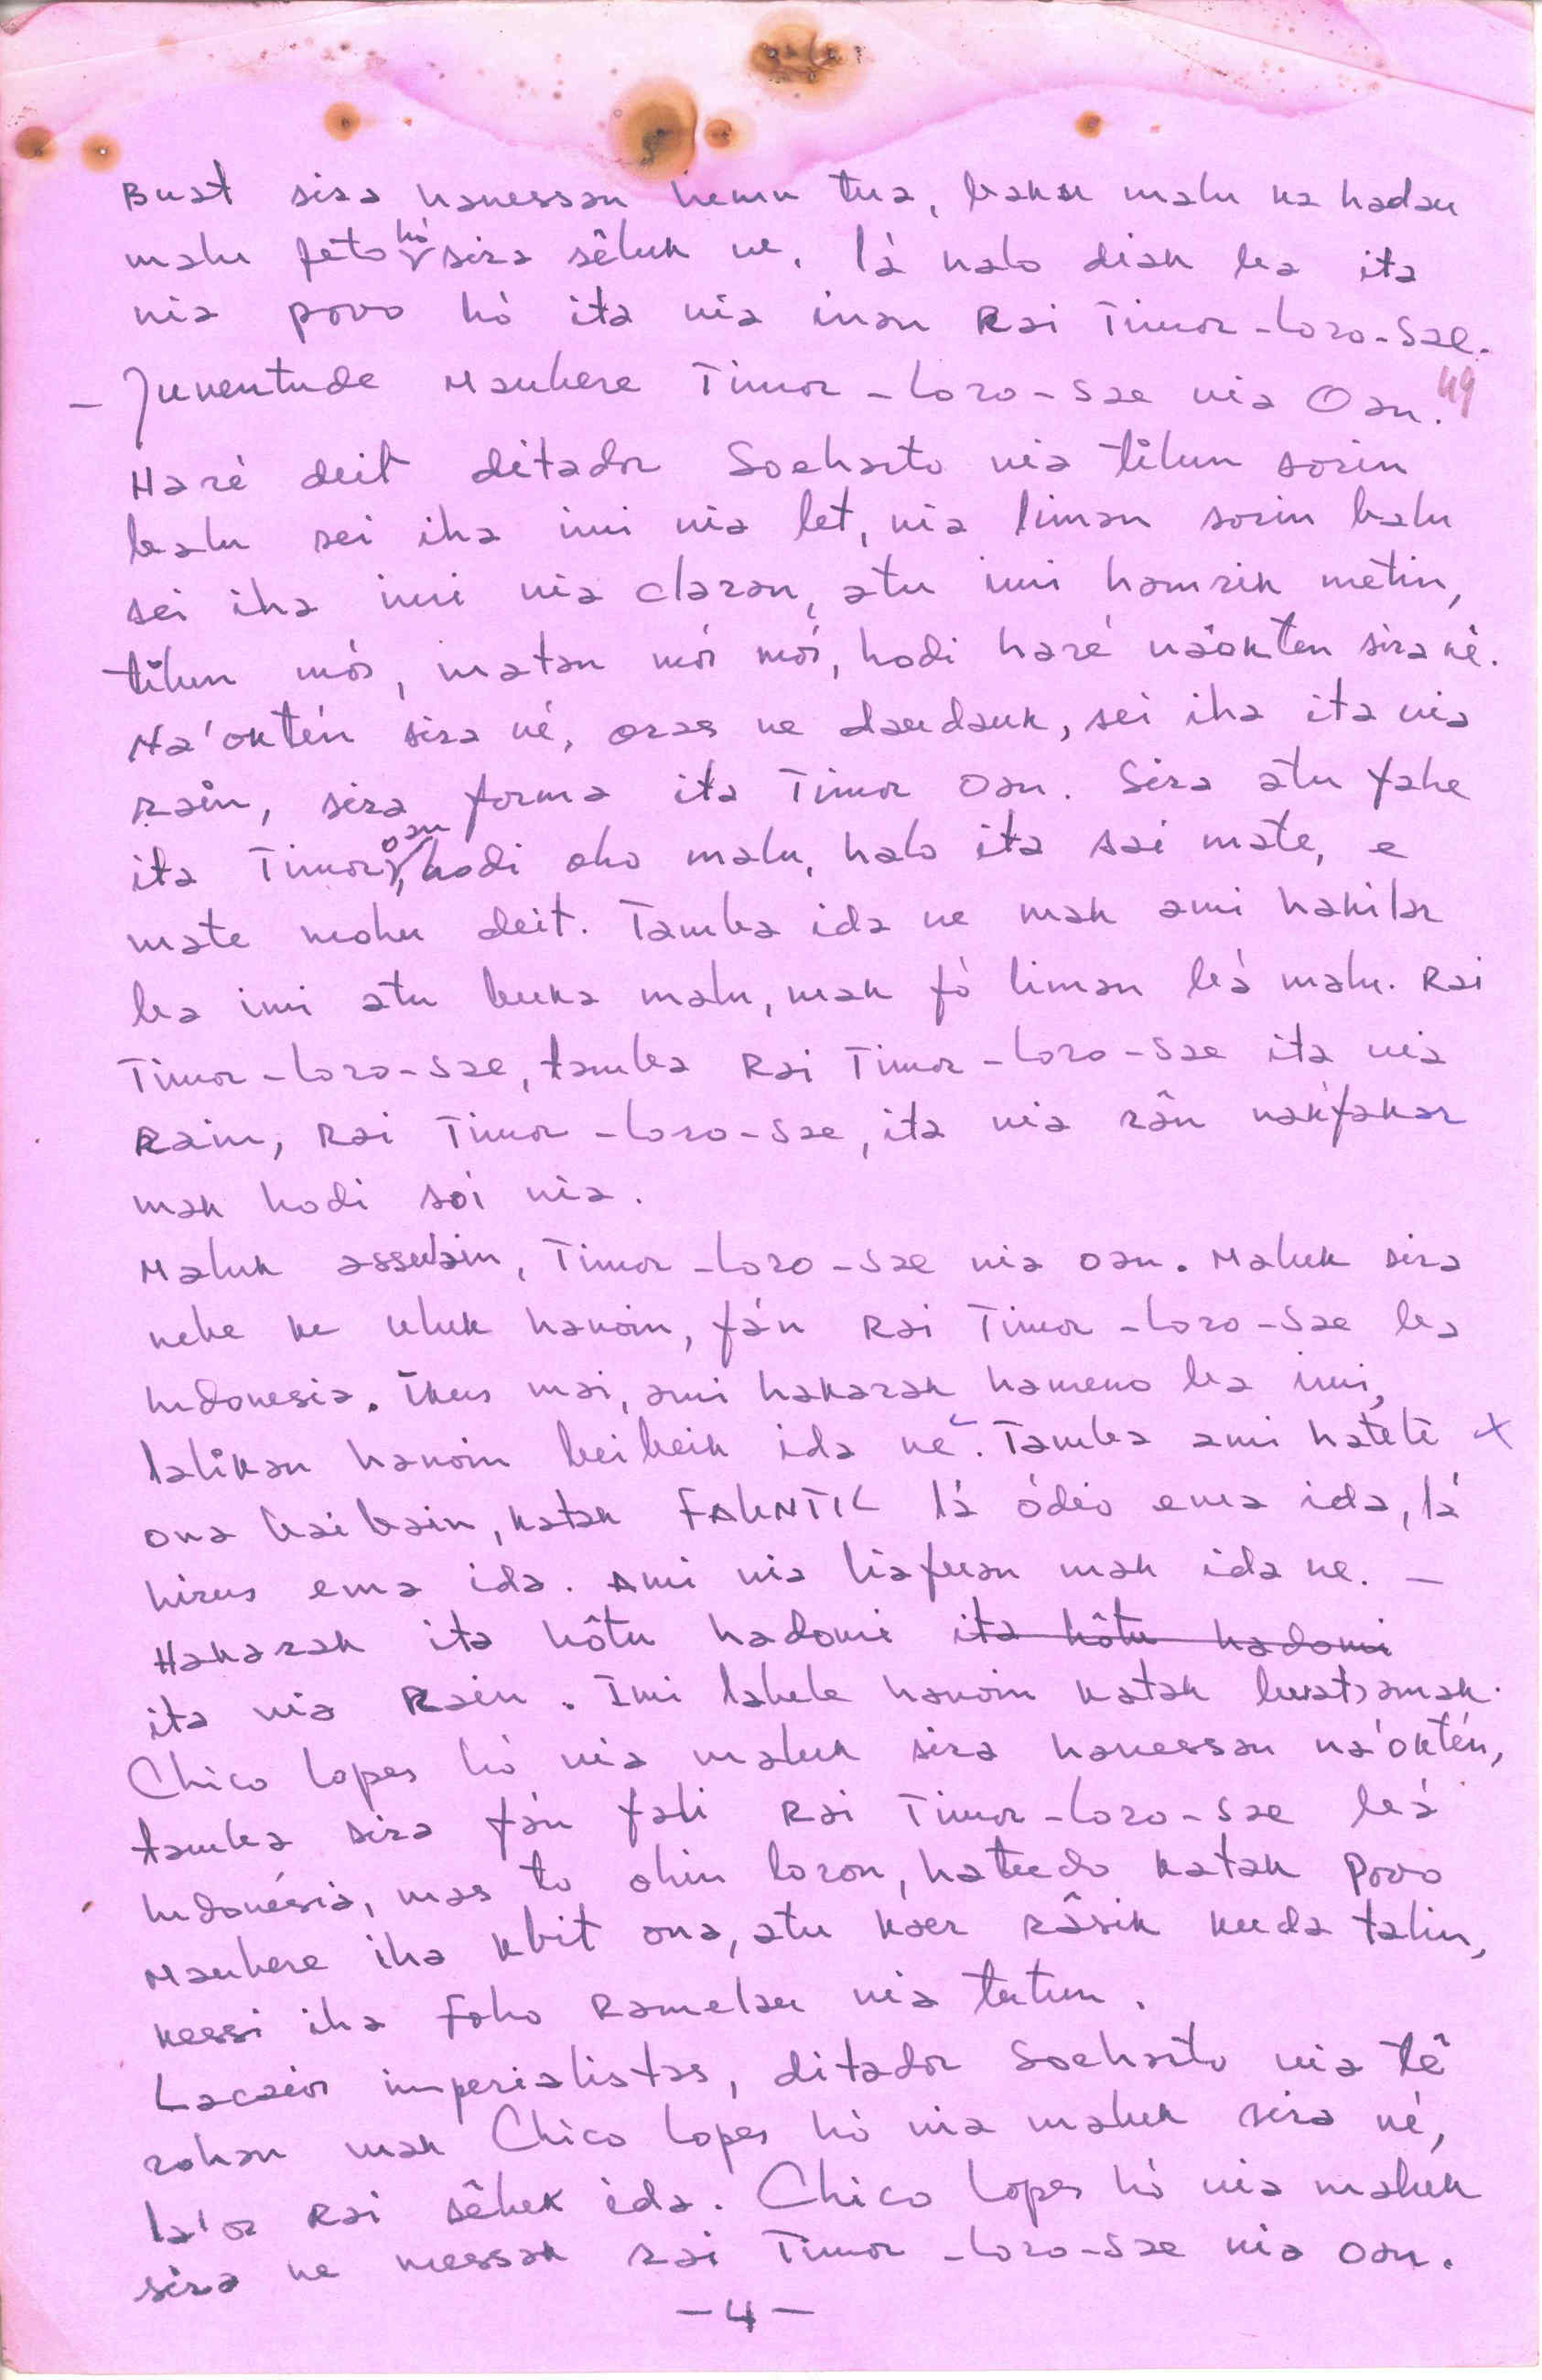 Buat sira hanessan hemu tua, baku malu ka hadau
malu feto hó sira séluk ne, lá halo diak ba ita
nia povo hó ita nia inan Rai Timor-Loro-Sae.
— Juventude Maubere Timor-Loro-Sae nia Oan. 49
Haré deit ditador Soeharto nia tilun sorin
balu sei iha imi nia let, nia liman sorin balu
sei iha imi nia claran, atu imi hamrik metin,
tilun mós, matan mói mói, hodi haré náokten sira né.
Na'oktén sira né, oras ne daudauk, sei iha ita nia
rain, sira forma ita Timor Oan. Sira atu fahe
ita Timor oan, hodi oho malu, halo ita sai mate, e
mate mohu deit. Tamba ida ne mak ami hakilar
ba imi atu buka malu, mak fó liman bá malu. Rai
Timor-Loro-Sae, tamba Rai Timor-Loro-Sae ita nia
Rain, Rai Timor-Loro-Sae, ita nia rân nakfakar
mak hodi soi nia.
Maluk assuain, Timor-Loro-Sae nia oan. Maluk sira
nebe ke uluk hanoin, fán Rai Timor-Loro-Sae ba
Indonesia. Ikus mai, ami hakarak hameno ba imi,
lalikan hanoin beibeik ida né. Tamba ami hatete x
ona baibain, katak FALINTIL lá ódio ema ida, lá
hirus ema ida. Ami nia liafuan mak ida ne. —
Hakarak ita hôtu hadomi ita hôtu hadomi
ita nia Rain. Imi labele hanoin katak buat
Chico Lopes hó nia maluk sira hanessan ná'oktén,
tamba sira fán fali Rai Timor-Loro-Sae bá
Indonésia, mas to ohin loron, hatudo katak Povo
Maubere iha kbit ona, atu kaer râsik kuda talin,
kessi iha Foho Ramelau nia tutun.
Lacaior imperialistas, ditador Soeharto nia tê
rohan mak Chico Lopes hó nia maluk sira né,
la'oz Rai sêluk ida. Chico Lopes hó nia maluk
sira ne messak rai Timor-Loro-Sae nia oan.
—4—